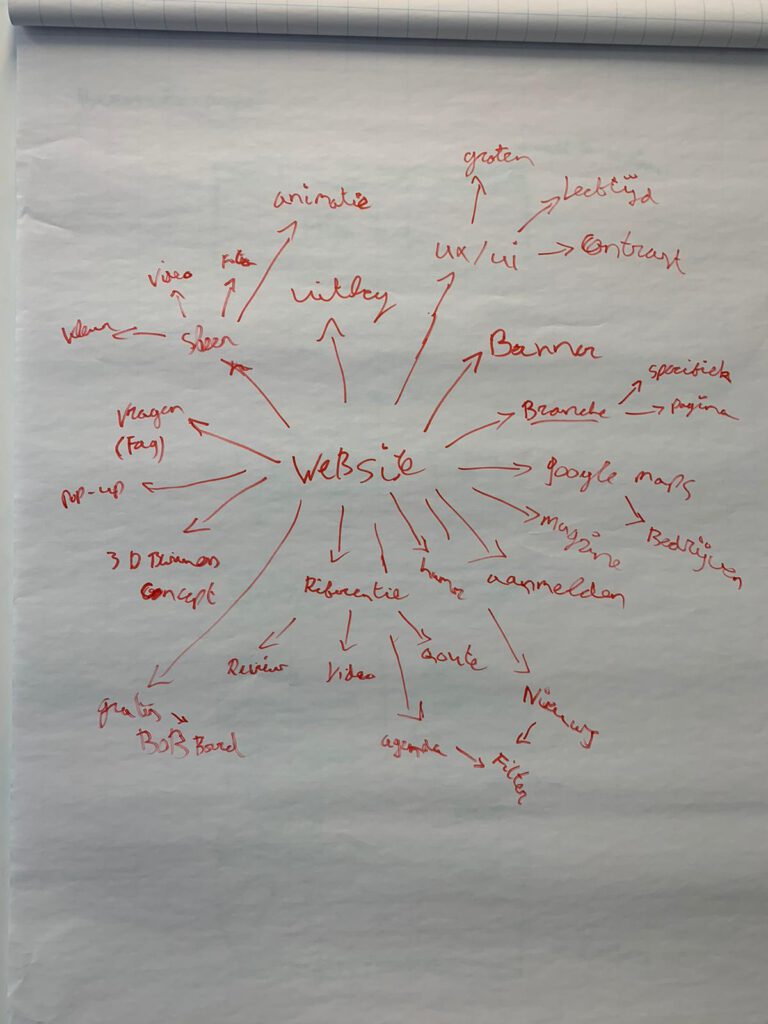 groten
Leeftijd
animatie
ux/ui
Contrast
Video
Foto
uitleg
kleur
Sfeer
Banner
specifiek
Branche
pagina
Vragen
(Faq)
WeBSite
google maps
POP-up
magzine
Bedrijven
3D
Concept
Riferentie
humor
aanmelden
Review
Video
Qoute
Nieuws
gratis
BOB Board
agenda
Filter